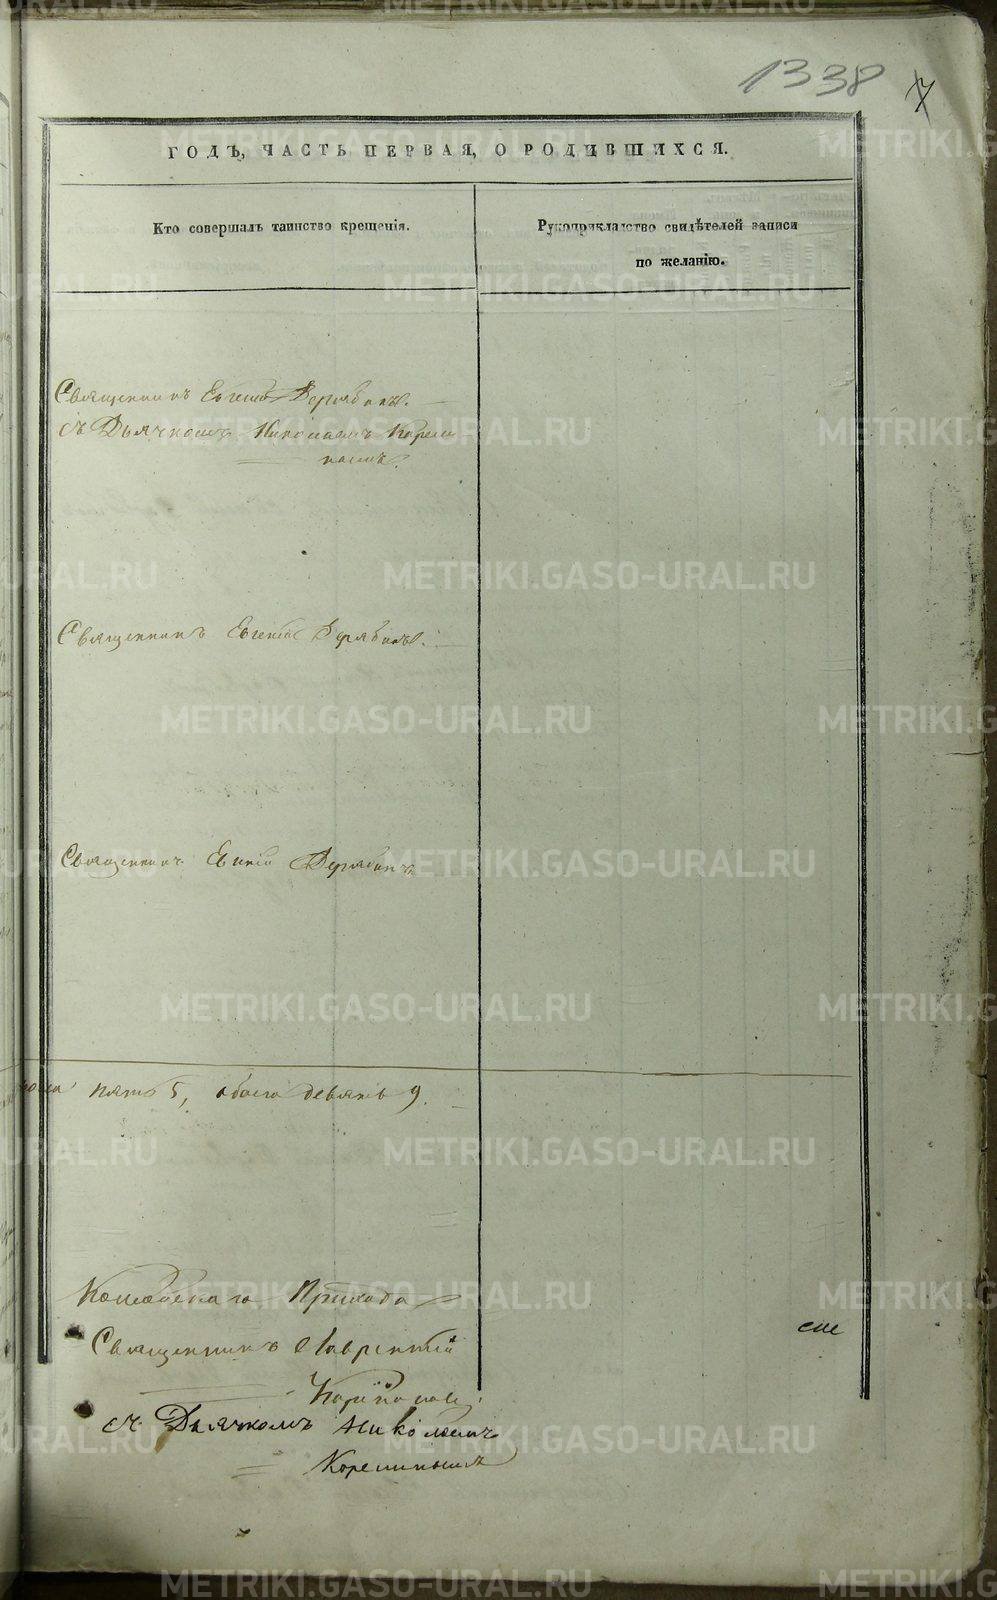 1338 7
ГОДЪ, ЧАСТЬ ПЕРВАЯ, О РОДИВШИХСЯ.
Кто совершалъ таинство крещенія.
Рукоприкладство свидѣтелей записи
по желанію.
Священникъ Евгеній Дерябинъ.
съ Дьячкомъ Николаемъ
Священникъ Евгеній Дерябинъ.
Священникъ Дерябинъ
пять 5, обоего девять 9.
Прихода
Священникъ Лаврентій
съ Дьячкомъ Николаемъ
METRIKI.GASO-URAL.RU